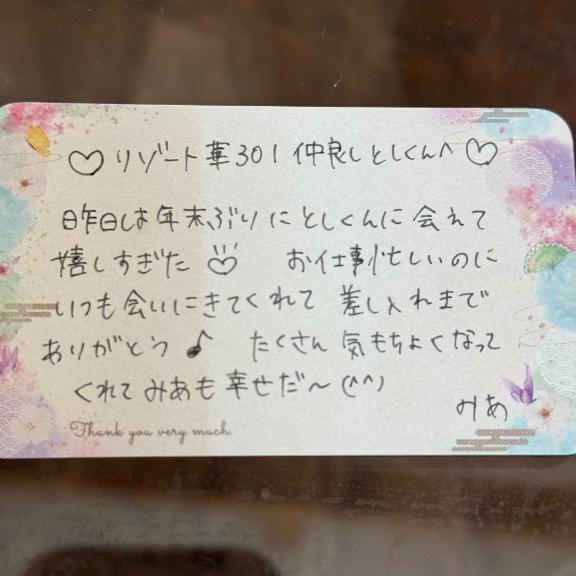 ♡リゾート華301 仲良しとしくんへ♡
昨日は年末ぶりにとしくんに会えて
嬉しすぎた♡ お仕事忙しいのに
いつも会いにきてくれて 差し入れまで
ありがとう♪ たくさん気もちよくなって
くれてみあも幸せだ〜(^^)
みあ
Thank you very much.